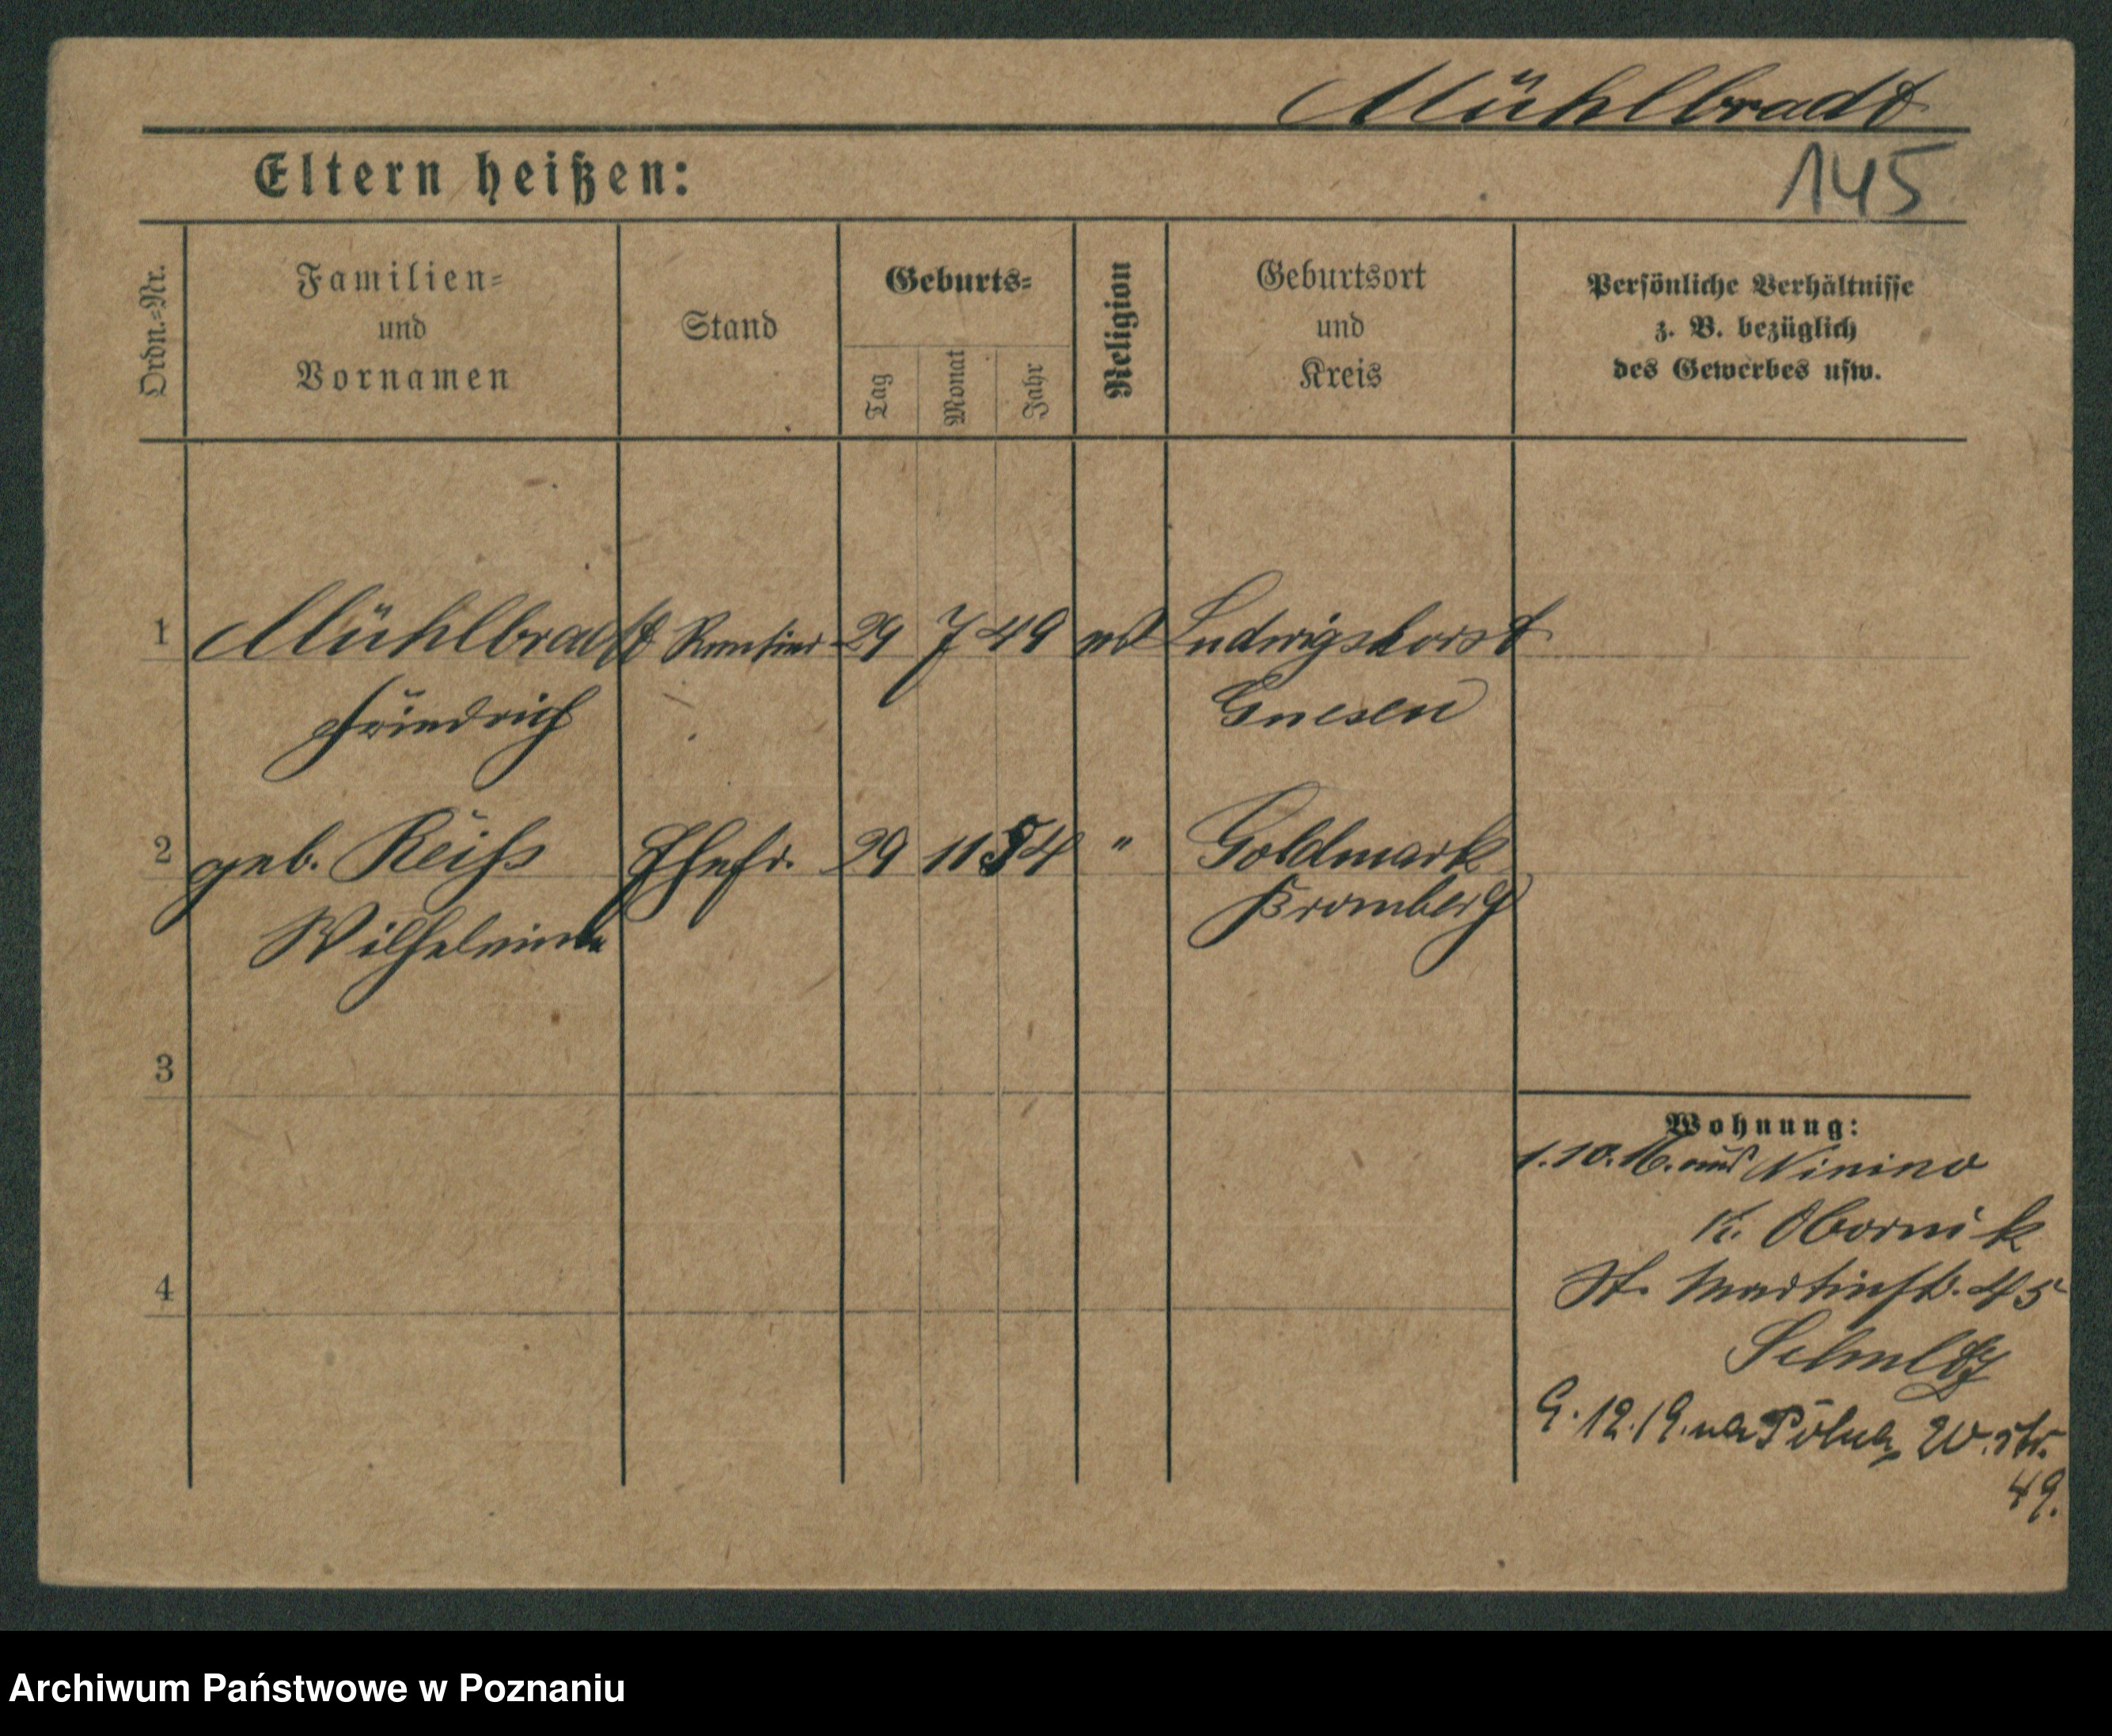 Mühlbradt
145
Eltern heißen:
Ordn.-Nr.
Familien-
und
Vornamen
Stand
Geburts-
Tag
Monat
Jahr
Religion
Geburtsort
und
Kreis
Persönliche Verhältnisse
z. B. bezüglich
des Gewerbes usw.
1 Mühlbradt Rentier 29 7 49 Ludwigshorst
Friedrich Gnesen
2 geb. Reiß Ehefr. 29 11 54 " Goldmark
Wilhelmine Bromberg
3
4
Wohnung:
1.10.16. aus Ninino
K. Obornik
St. Martinstr. 45
Schultz
9.12.19. na Pólną W. str.
49.
Archiwum Państwowe w Poznaniu